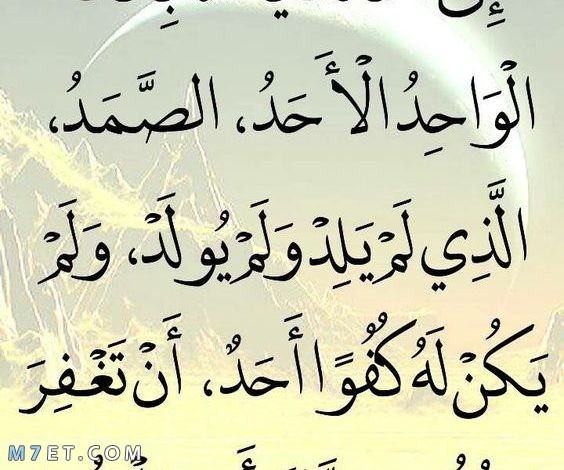 الْوَاحِدُ الْأَحَدُ، الصَّمَدُ،
الَّذِي لَمْ يَلِدْ وَلَمْ يُولَدْ، وَلَمْ
يَكُنْ لَهُ كُفُوًا أَحَدٌ، أَنْ تَغْفِرَ
M7ET.COM